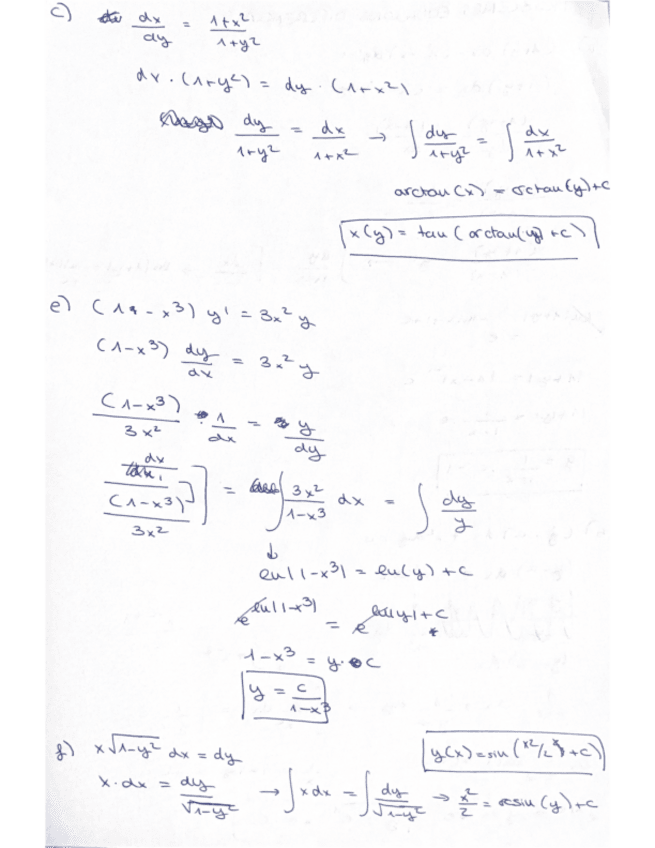 c) dx/dy = 1+x²/1+y²
dx · (1+y²) = dy · (1+x²)
dy/1+y² = dx/1+x² → ∫ dy/1+y² = ∫ dx/1+x²
arctan(x) = arctan(y)+c
x(y) = tan(arctan(y)+c)
e) (1-x³) y' = 3x² y
(1-x³) dy/dx = 3x² y
(1-x³)/3x² · 1/dx = y/dy
dx/(1-x³)/3x² ] = ∫ 3x²/1-x³ dx = ∫ dy/y
↓
ln|1-x³| = ln(y)+c
e^ln|1-x³| = e^ln|y|+c
1-x³ = y·c
y = c/1-x³
f) x√1-y² dx = dy
y(x) = sin(x²/2+c)
x·dx = dy/√1-y² → ∫x dx = ∫ dy/√1-y² → x²/2 = arcsin(y)+c